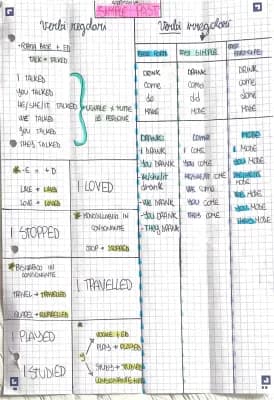 SIMPLE PAST
Verbi regolari
• FORMA BASE + ED
TALK → TALKED
I TALKED
YOU TALKED
HE/SHE/IT TALKED
WE TALKED
YOU TALKED
THEY TALKED
UGUALE X TUTTE
LE PERSONE
-E = + D
LOVE → LOVED
I LOVED
I STOPPED
MONOSILLABO IN
CONSONANTE
STOP → STOPPED
BISILLABO IN
CONSONANTE
TRAVEL → TRAVELLED
I TRAVELLED
I PLAYED
I STUDIED
VOCALE + ED
PLAY → PLAYED
y
STUDY → STUDIED
CONSONANTE
Verbi irregolari
BASE FORM
PAST SIMPLE
PAST PARTICIPLE
DRINK
DRANK
DRUNK
COME
CAME
COME
do
did
done
MAKE
MADE
MADE
DRINK:
I DRANK
YOU DRANK
He/she/it
drank
WE DRANK
YOU DRANK
THEY DRANK
COME
I CAME
YOU CAME
HE/SHE/IT CAME
WE CAME
YOU CAME
THEY CAME
I MADE
YOU MADE
MADE
WE MADE
YOU MADE
THEY MADE